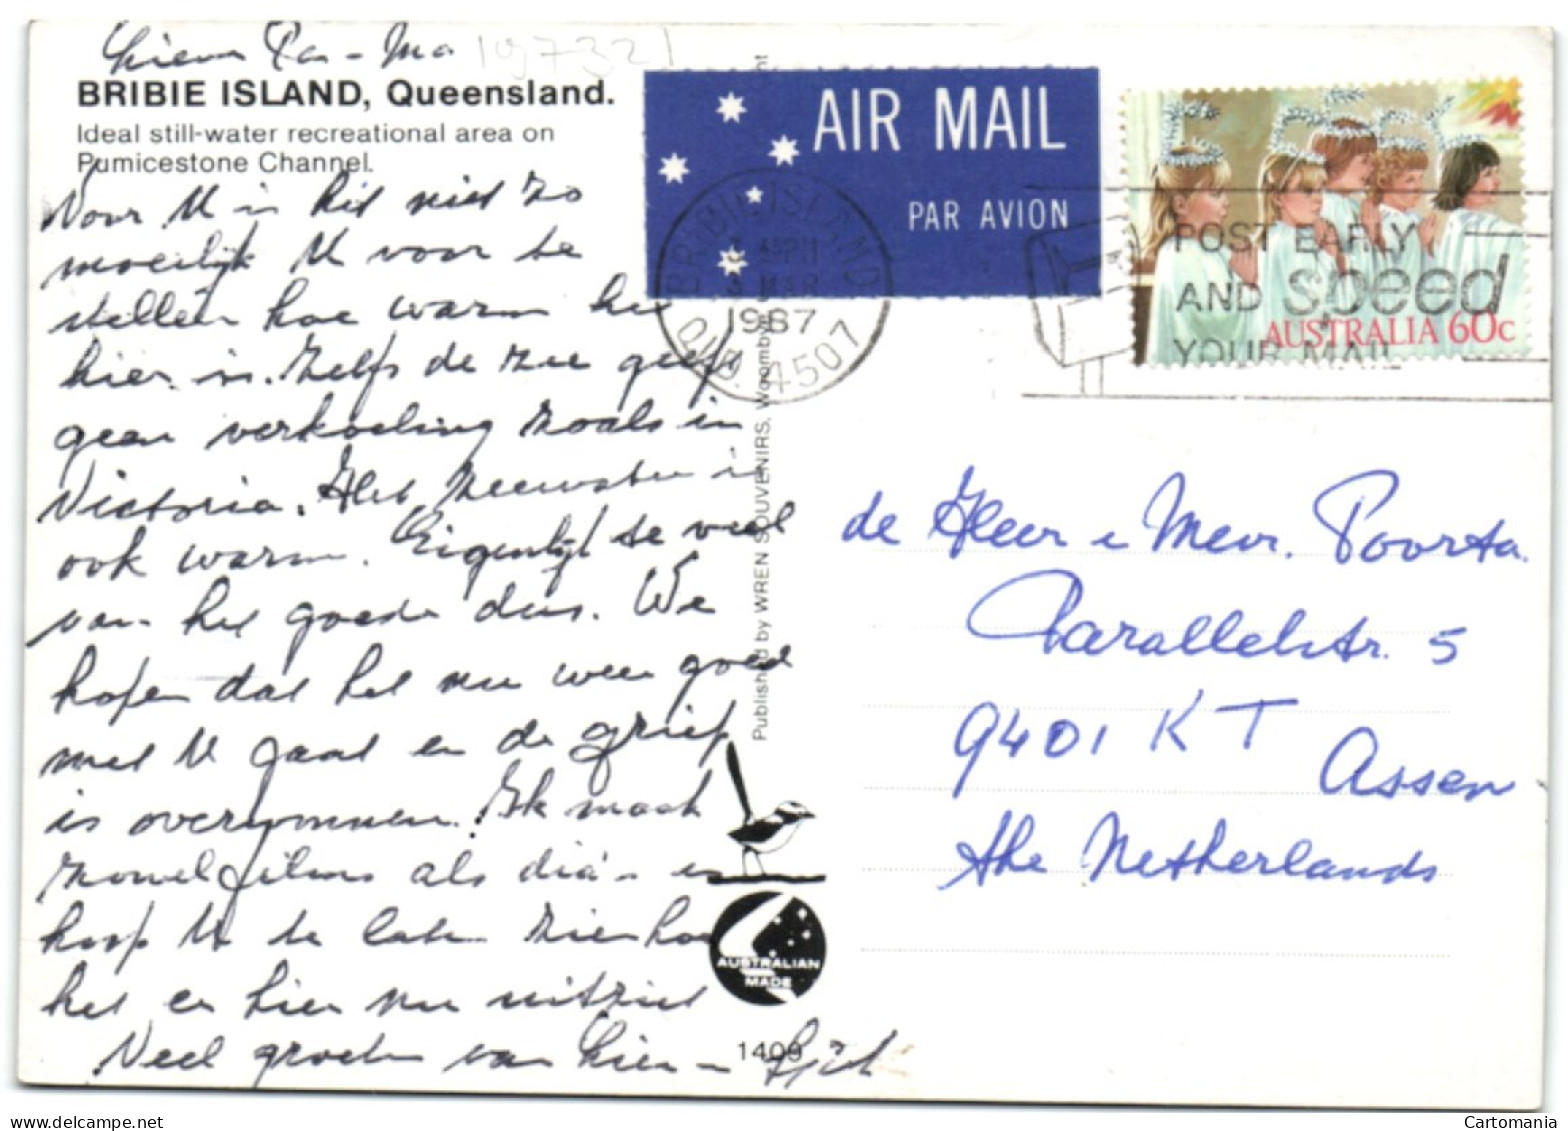 Lieve Pa - Ma
197321
BRIBIE ISLAND, Queensland.
Ideal still-water recreational area on
Pumicestone Channel.
Voor U is het niet zo
moeilijk U voor te
stellen hoe warm het
hier is. Zelfs de zee geeft
geen verkoeling zoals in
Victoria. Het zeewater is
ook warm. Eigenlijk te veel
van het goede dus. We
hopen dat het nu weer goed
met U gaat en de griep
is overwonnen. Ik maak
zowel films als dia's en
hoop U te laten zien hoe
het er hier nu uitziet
Veel groeten van Lien -
Published by WREN SOUVENIRS,
AUSTRALIAN
MADE
1409
AIR MAIL
PAR AVION
BRIBIE ISLAND
MAR
1987
QLD. 4507
POST EARLY
AND speed
YOUR MAIL
AUSTRALIA 60c
de Heer e Mevr. Poorta.
Parallelstr. 5
9401 KT
Assen
the Netherlands
www.delcampe.net
Cartomania